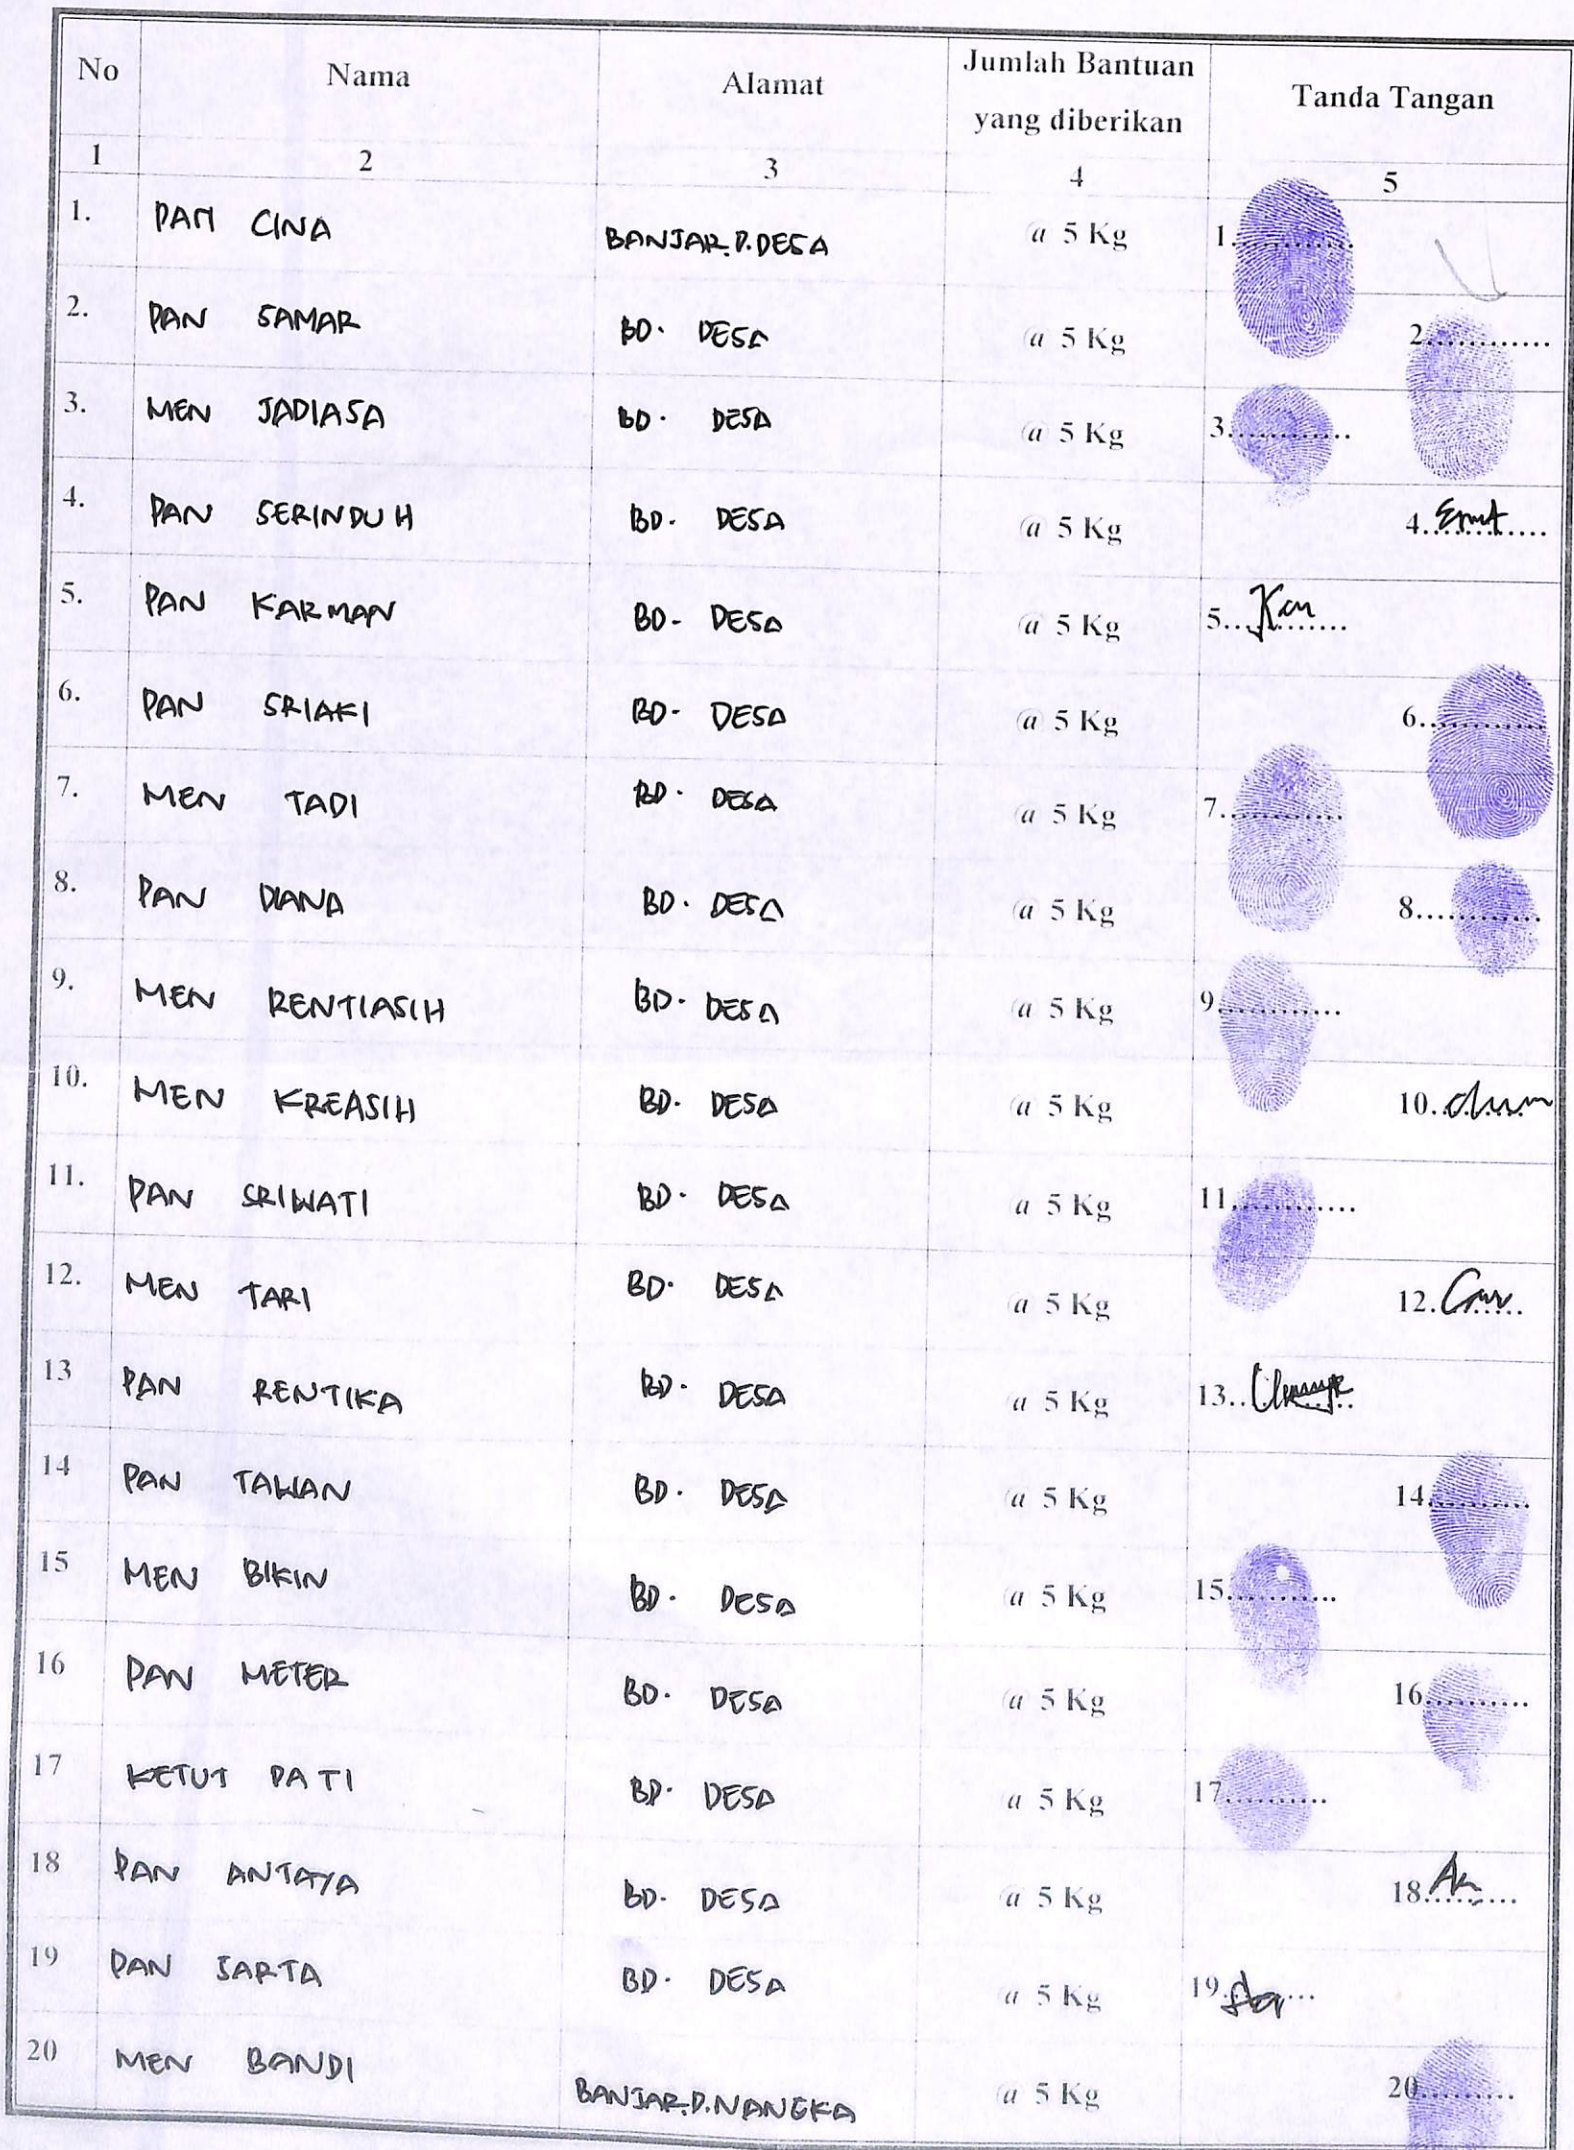 No Nama Alamat Jumlah Bantuan yang diberikan Tanda Tangan
1 2 3 4 5
1. PAN CINA BANJAR.D.DESA @ 5 Kg 1............
2. PAN SAMAR BD. DESA @ 5 Kg 2............
3. MEN JADIASA BD. DESA @ 5 Kg 3............
4. PAN SERINDUH BD. DESA @ 5 Kg 4............
5. PAN KARMAN BD- DESA @ 5 Kg 5............
6. PAN SRIAKI BD- DESA @ 5 Kg 6............
7. MEN TADI BD. DESA @ 5 Kg 7............
8. PAN DIANA BD. DESA @ 5 Kg 8............
9. MEN RENTIASIH BD. DESA @ 5 Kg 9............
10. MEN KREASIH BD. DESA @ 5 Kg 10............
11. PAN SRIWATI BD. DESA @ 5 Kg 11............
12. MEN TARI BD. DESA @ 5 Kg 12............
13 PAN RENTIKA BD. DESA @ 5 Kg 13............
14 PAN TAWAN BD. DESA @ 5 Kg 14..........
15 MEN BIKIN BD. DESA @ 5 Kg 15...........
16 PAN METER BD. DESA @ 5 Kg 16..........
17 KETUT PATI BD. DESA @ 5 Kg 17..........
18 PAN ANTAYA BD. DESA @ 5 Kg 18..........
19 PAN SARTA BD. DESA @ 5 Kg 19..........
20 MEN BANDI BANJAR.D.NANGKA @ 5 Kg 20..........